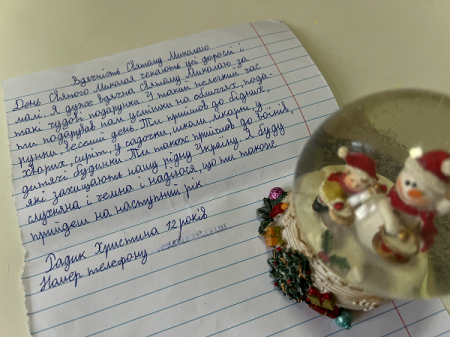 Вдячність Святому Миколаю
День Святого Миколая чекають усі дорослі і
малі. Я дуже вдячна Святому Миколаю за
такі чудові подарунки. У такий нелегкий час
ти подарував нам усмішки на обличчях, пода-
рунки і веселий день. Ти прийшов до бідних,
хворих, сиріт, у садочки, школи, лікарні, у
дитячі будинки. Ти також прийшов до воїнів,
які захищають нашу рідну Україну. Я буду
слухняна і чемна і надіюся, що ти також
прийдеш на наступний рік.
Радик Христина 12 років
Номер телефону